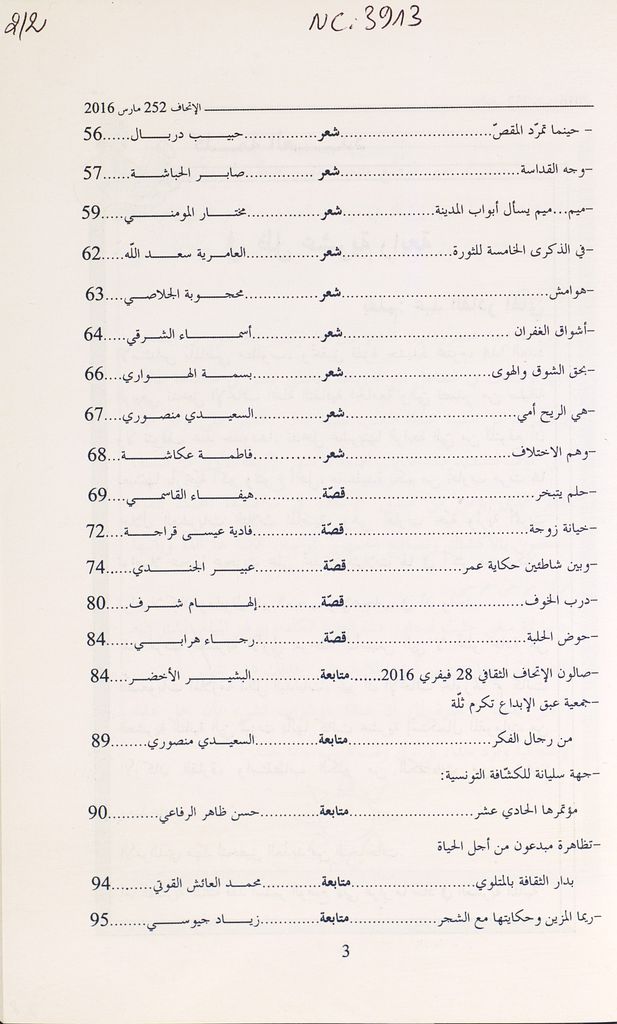 2/2
NC: 3913
الإتحاف 252 مارس 2016
- حينما تمرّد المقصّ......شعر......حبيب دربال......56
-وجه القداسة......شعر......صابر الحباشة......57
-ميم...ميم يسأل أبواب المدينة......شعر......مختار المومني......59
-في الذكرى الخامسة للثورة......شعر......العامرية سعد اللّه......62
-هوامش......شعر......محجوبة الجلاصي......63
-أشواق الغفران......شعر......أسماء الشرقي......64
-بحق الشوق والهوى......شعر......بسمة الهواري......66
-هي الريح أمي......شعر......السعيدي منصوري......67
-وهم الاختلاف......شعر......فاطمة عكاشة......68
-حلم يتبخر......قصّة......هيفاء القاسمي......69
-خيانة زوجة......قصّة......فادية عيسى قراجة......72
-وبين شاطئين حكاية عمر......قصّة......عبير الجندي......74
-درب الخوف......قصّة......إلهام شرف......80
-حوض الحلبة......قصّة......رجاء هرابي......84
-صالون الإتحاف الثقافي 28 فيفري 2016......متابعة......البشير الأخضر......84
-جمعية عبق الإبداع تكرم ثلّة
من رجال الفكر......متابعة......السعيدي منصوري......89
-جهة سليانة للكشّافة التونسية:
مؤتمرها الحادي عشر......متابعة......حسن ظاهر الرفاعي......90
-تظاهرة مبدعون من أجل الحياة
بدار الثقافة بالمتلوي......متابعة......محمد العائش القوتي......94
-ريما المزين وحكايتها مع الشجر......متابعة......زياد جيوسي......95
3